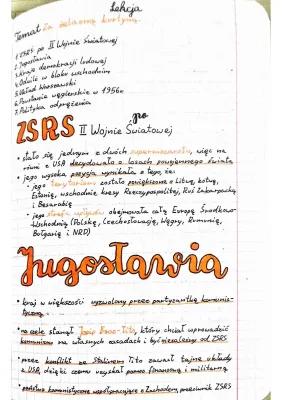 Lekcja
Temat Za żelazną kurtyną
1. ZSRS po II Wojnie Światowej
2. Jugosławia
3. Kraje demokracji ludowej
4. Odwilż w bloku wschodnim
5. Układ Warszawski
6. Powstanie węgierskie w 1956r
7. Polityka odprężenia
ZSRS po II Wojnie Światowej
• stało się jednym z dwóch supermocarstw, więc na
równi z USA decydowało o losach powojennego świata
• jego wysoka pozycja wynikała z tego, że:
• jego terytorium zostało powiększone o Litwę, Łotwę,
Estonię, wschodnie kresy Rzeczypospolitej, Ruś Zakarpacką
i Besarabię
• jego strefa wpływów obejmowała całą Europę Środkowo-
Wschodnią (Polskę, Czechosłowację, Węgry, Rumunię,
Bułgarię i NRD)
Jugosławia
• kraj w większości wyzwolony przez partyzantkę komunis-
tyczną
• na czele stanął Josip Broz-Tito, który chciał wprowadzić
komunizm na własnych zasadach i być niezależny od ZSRS
• przez konflikt ze Stalinem Tito zawarł tajne układy
z USA, dzięki czemu uzyskał pomoc finansową i militarną
• państwo komunistyczne współpracujące z Zachodem, przeciwnik ZSRS